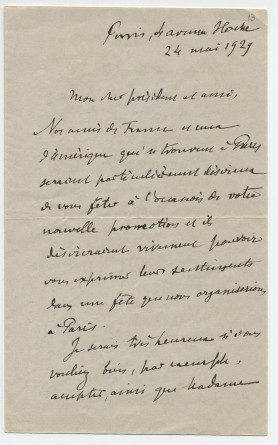 Paris, 4 avenue Hoche
24 mai 1929
Mon cher président et ami,
Nos amis de France et ceux
d'Amérique qui se trouvent à Paris
seraient particulièrement désireux
de vous fêter à l'occasion de votre
nouvelle promotion et ils
désireraient vivement pouvoir
vous exprimer leurs sentiments
dans une fête que nous organiserions
à Paris.
Je serais très heureux si vous
vouliez bien, par exemple,
accepter, ainsi que Madame